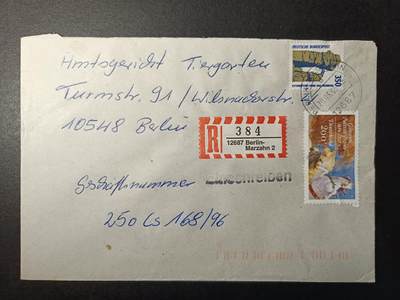 Amtsgericht Tiergarten
Turmstr. 91 / Wilsnackerstr. 
10548 Berlin
DEUTSCHE BUNDESPOST
350
R
384
12687 Berlin-
Marzahn 2
Einschreiben
200
Geschäftsnummer
250 Cs 168/96